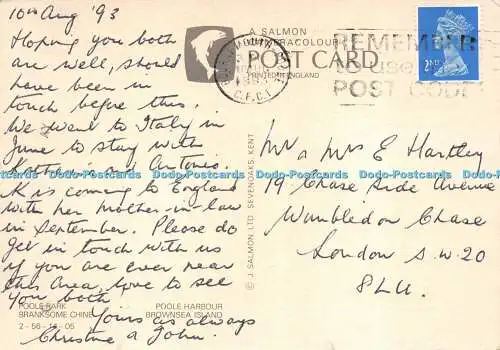 10th Aug '93
Hoping you both
are well, should
have been in
touch before this.
We went to Italy in
June to stay with
Katharine & Antonio.
K is coming to England
with her mother-in-law
in September. Please do
get in touch with us
if you are ever near
this area, love to see
you both
Yours as always
Christine & John.
POOLE PARK
BRANKSOME CHINE
2-56-14-05
POOLE HARBOUR
BROWNSEA ISLAND
A SALMON
CAMERACOLOUR
POST CARD
PRINTED IN ENGLAND
© J. SALMON LTD. SEVENOAKS, KENT
REMEMBER
to use
POST CODE
2ND
Mr & Mrs E Hartley
19 Chase Side Avenue
Wimbledon Chase
London S.W.20
8LU.
Postcards